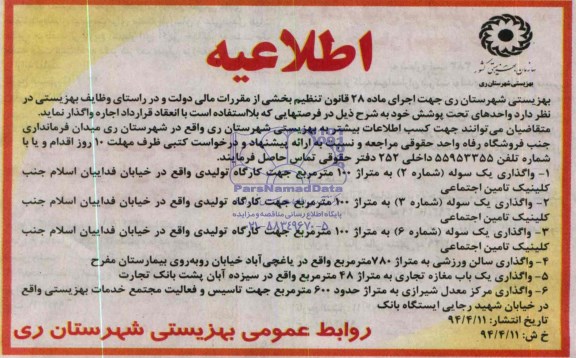 اطلاعیه
سازمان بهزیستی کشور
بهزیستی شهرستان ری
بهزیستی شهرستان ری جهت اجرای ماده ۲۸ قانون تنظیم بخشی از مقررات مالی دولت و در راستای وظایف بهزیستی در
نظر دارد واحدهای تحت پوشش خود به شرح ذیل در فرصتهایی که بلااستفاده است با انعقاد قرارداد اجاره واگذار نماید.
متقاضیان می‌توانند جهت کسب اطلاعات بیشتر به بهزیستی شهرستان ری واقع در شهرستان ری میدان فرمانداری
جنب فروشگاه رفاه واحد حقوقی مراجعه و نسبت به ارائه پیشنهاد و درخواست کتبی ظرف مهلت ۱۰ روز اقدام و یا با
شماره تلفن ۵۵۹۵۳۳۵۵ داخلی ۲۵۲ دفتر حقوقی تماس حاصل فرمایند.
۱- واگذاری یک سوله (شماره ۲) به متراژ ۱۰۰ مترمربع جهت کارگاه تولیدی واقع در خیابان فداییان اسلام جنب
کلینیک تامین اجتماعی
۲- واگذاری یک سوله (شماره ۳) به متراژ ۱۰۰ مترمربع جهت کارگاه تولیدی واقع در خیابان فداییان اسلام جنب
کلینیک تامین اجتماعی
۳- واگذاری یک سوله (شماره ۶) به متراژ ۱۰۰ مترمربع جهت کارگاه تولیدی واقع در خیابان فداییان اسلام جنب
کلینیک تامین اجتماعی
۴- واگذاری سالن ورزشی به متراژ ۷۸۰مترمربع واقع در باغچی‌آباد خیابان روبه‌روی بیمارستان مفرح
۵- واگذاری یک باب مغازه تجاری به متراژ ۴۸ مترمربع واقع در سیزده آبان پشت بانک تجارت
۶- واگذاری مرکز معدل شیرازی به متراژ حدود ۶۰۰ مترمربع جهت تاسیس و فعالیت مجتمع خدمات بهزیستی واقع
در خیابان شهید رجایی ایستگاه بانک
تاریخ انتشار: ۹۴/۴/۱۱
خ ش: ۹۴/۴/۱۱
روابط عمومی بهزیستی شهرستان ری
ParsNamadData
پایگاه اطلاع رسانی مناقصه و مزایده
۰۲۱-۸۸۳۴۹۶۷۰-۵